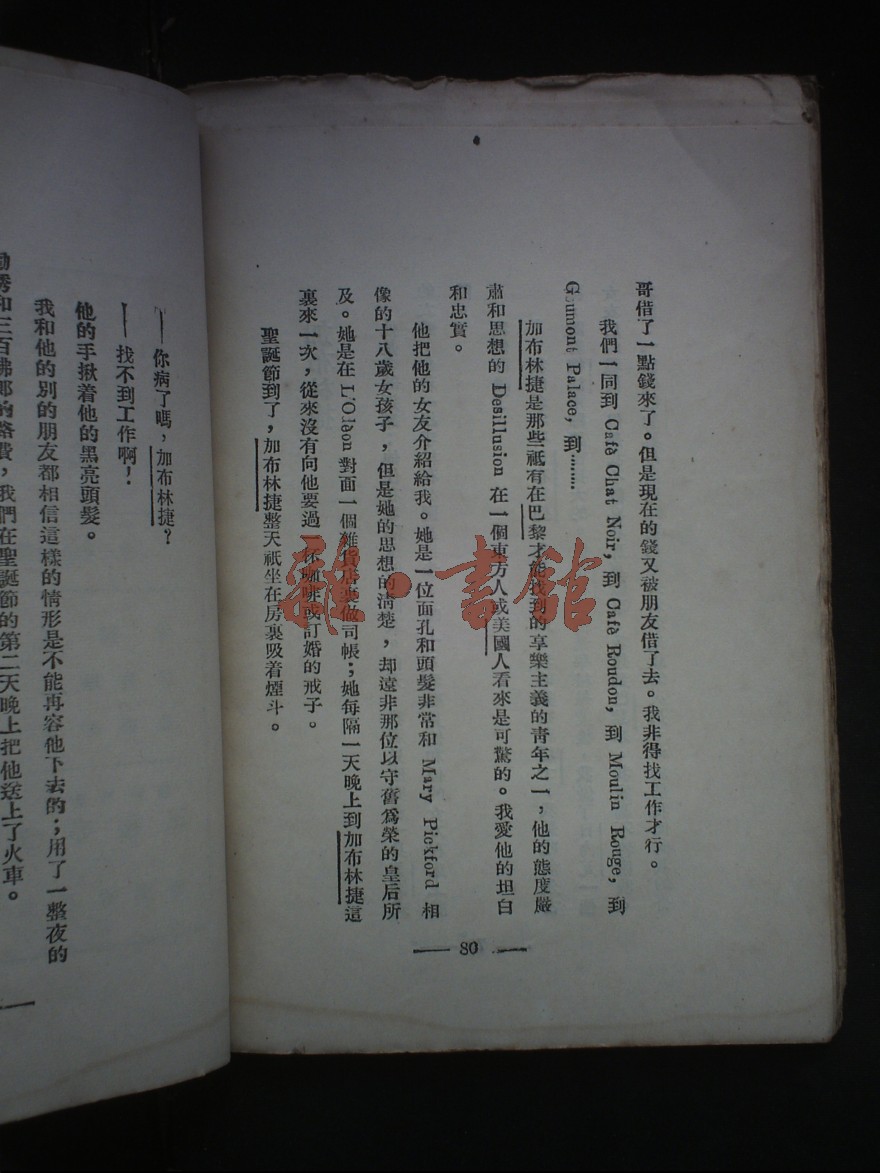 哥借了一點錢來了。但是現在的錢又被朋友借了去。我非得找工作才行。
我們一同到 Cafè Chat Noir, 到 Cafè Roudon, 到 Moulin Rouge, 到
Gaumont Palace, 到………
加布林捷是那些祇有在巴黎才能找到的享樂主義的青年之一，他的態度嚴
肅和思想的 Desillusion 在一個東方人或美國人看來是可驚的。我愛他的坦白
和忠實。
他把他的女友介紹給我。她是一位面孔和頭髮非常和 Mary Pickford 相
像的十八歲女孩子，但是她的思想的清楚，却遠非那位以守舊爲榮的皇后所
及。她是在 L'Olèon 對面一個雜貨店裏做司帳；她每隔一天晚上到加布林捷這
裏來一次，從來沒有向他要過一杯咖啡或訂婚的戒子。
聖誕節到了，加布林捷整天祇坐在房裏吸着煙斗。
80
——你病了嗎，加布林捷？
——找不到工作啊！
他的手揪着他的黑亮頭髮。
我和他的別的朋友都相信這樣的情形是不能再容他下去的；用了一整夜的
和三百佛郎的路費，我們在聖誕節的第二天晚上把他送上了火車。
雜·書館